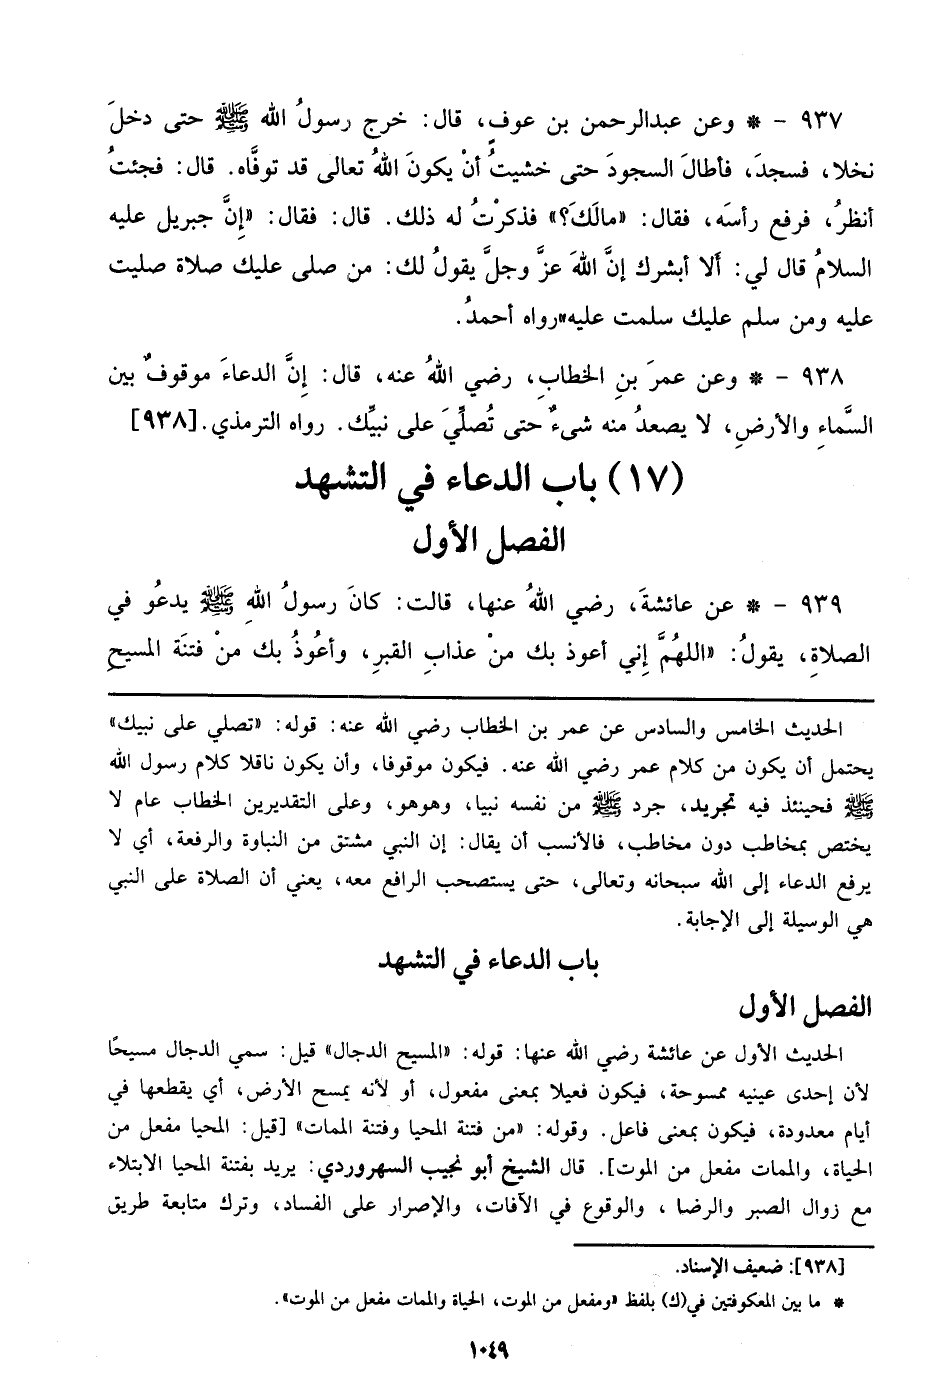 ٩٣٧ - * وعن عبدالرحمن بن عوفٍ، قال: خرج رسولُ الله ﷺ حتى دخلَ
نخلا، فسجدَ، فأطالَ السجودَ حتى خشيتُ أنْ يكونَ اللهُ تعالى قد توفَّاه. قال: فجئتُ
أنظرُ، فرفع رأسَه، فقال: «مالَكَ؟» فذكرْتُ له ذلك. قال: فقال: «إنَّ جبريل عليه
السلامُ قال لي: ألا أبشرك إنَّ اللهَ عزَّ وجلَّ يقولُ لك: من صلى عليك صلاة صليت
عليه ومن سلم عليك سلمت عليه»رواه أحمدُ.
٩٣٨ - * وعن عمرَ بنِ الخطابِ، رضي اللهُ عنه، قال: إنَّ الدعاءَ موقوفٌ بين
السَّماءِ والأرضِ، لا يصعدُ منه شيءٌ حتى تُصلِّيَ على نبيِّك. رواه الترمذي.[٩٣٨]
(١٧) باب الدعاء في التشهد
الفصل الأول
٩٣٩ - * عن عائشةَ، رضي اللهُ عنها، قالت: كانَ رسولُ اللهِ ﷺ يدعُو في
الصلاةِ، يقولُ: «اللهُمَّ إني أعوذ بك منْ عذابِ القبرِ، وأعُوذُ بك منْ فتنَة المسيحِ
الحديث الخامس والسادس عن عمر بن الخطاب رضي الله عنه: قوله: «تصلي على نبيك»
يحتمل أن يكون من كلام عمر رضي الله عنه. فيكون موقوفا، وأن يكون ناقلا كلام رسول الله
ﷺ فحينئذ فيه تجريد، جرد ﷺ من نفسه نبيا، وهوهو، وعلى التقديرين الخطاب عام لا
يختص بمخاطب دون مخاطب، فالأنسب أن يقال: إن النبي مشتق من النباوة والرفعة، أي لا
يرفع الدعاء إلى الله سبحانه وتعالى، حتى يستصحب الرافع معه، يعني أن الصلاة على النبي
هي الوسيلة إلى الإجابة.
باب الدعاء في التشهد
الفصل الأول
الحديث الأول عن عائشة رضي الله عنها: قوله: «المسيح الدجال» قيل: سمي الدجال مسيحًا
لأن إحدى عينيه ممسوحة، فيكون فعيلا بمعنى مفعول، أو لأنه يمسح الأرض، أي يقطعها في
أيام معدودة، فيكون بمعنى فاعل. وقوله: «من فتنة المحيا وفتنة الممات» [قيل: المحيا مفعل من
الحياة، والممات مفعل من الموت]. قال الشيخ أبو نجيب السهروردي: يريد بفتنة المحيا الابتلاء
مع زوال الصبر والرضا ، والوقوع في الآفات، والإصرار على الفساد، وترك متابعة طريق
[٩٣٨]: ضعيف الإسناد.
* ما بين المعكوفتين في(ك) بلفظ «ومفعل من الموت، الحياة والممات مفعل من الموت».
١٠٤٩